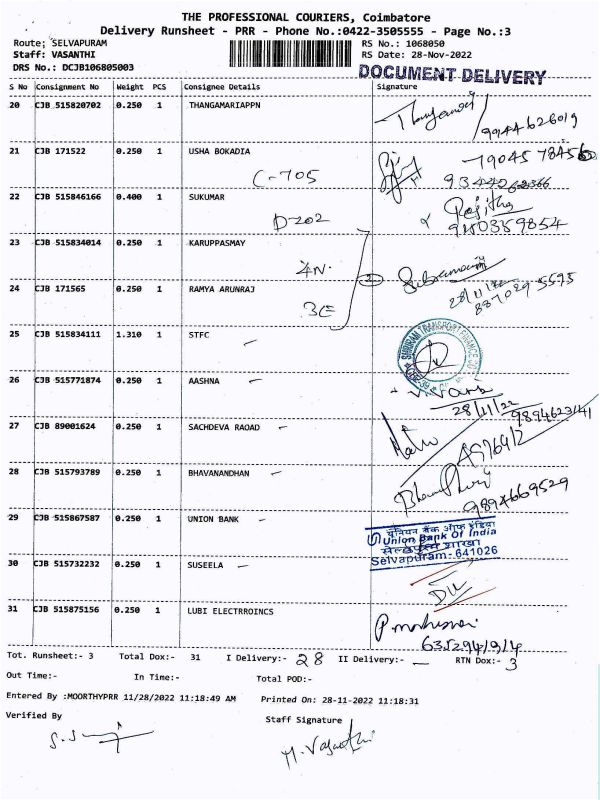 THE PROFESSIONAL COURIERS, Coimbatore
Delivery Runsheet - PRR - Phone No.:0422-3505555 - Page No.:3
Route; SELVAPURAM
RS No.: 1068050
Staff: VASANTHI
RS Date: 28-Nov-2022
DRS No.: DCJB106805003
DOCUMENT DELIVERY
S No Consignment No Weight PCS Consignee Details Signature
20 CJB 515820702 0.250 1 THANGAMARIAPPN
9944626019
21 CJB 171522 0.250 1 USHA BOKADIA
C-705
22 CJB 515846166 0.400 1 SUKUMAR
D-202
Rajitha
9180359854
23 CJB 515834014 0.250 1 KARUPPASMAY
4N.
24 CJB 171565 0.250 1 RAMYA ARUNRAJ
3E
2
28/11/22
25 CJB 515834111 1.310 1 STFC
SHRIRAM TRANSPORT FINANCE CO.
26 CJB 515771874 0.250 1 AASHNA
28/11/22
27 CJB 89001624 0.250 1 SACHDEVA RAOAD
28 CJB 515793789 0.250 1 BHAVANANDHAN
9894669529
29 CJB 515867587 0.250 1 UNION BANK
यूनियन बैंक ऑफ इंडिया
Union Bank Of India
शाखा
Selvapuram - 641026
30 CJB 515732232 0.250 1 SUSEELA
31 CJB 515875156 0.250 1 LUBI ELECTRROINCS
Tot. Runsheet:- 3 Total Dox:- 31 I Delivery:- 28 II Delivery:- — RTN Dox:- 3
Out Time:- In Time:- Total POD:-
Entered By :MOORTHYPRR 11/28/2022 11:18:49 AM Printed On: 28-11-2022 11:18:31
Verified By Staff Signature
M. Vasanthi